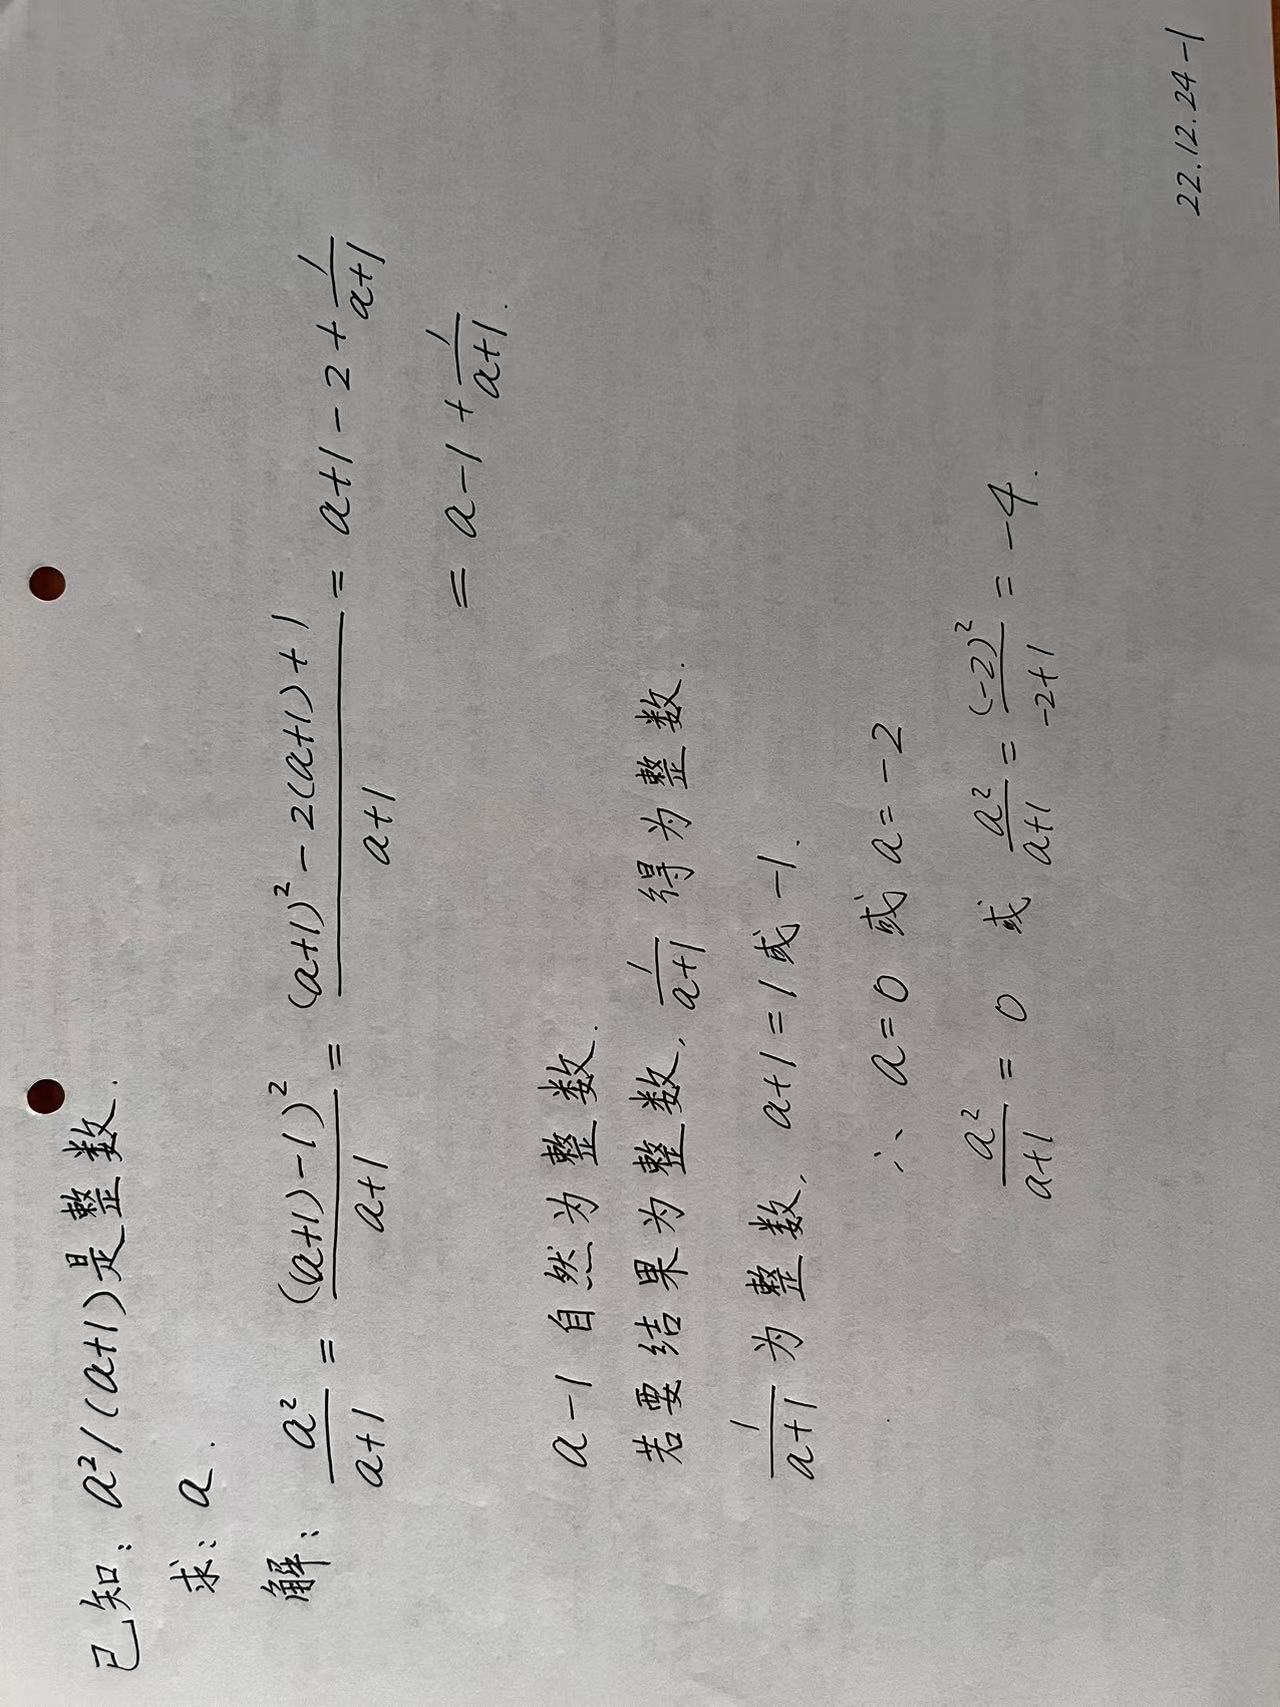 已知: a²/(a+1)是整数.
求: a.
解: a²/(a+1) = ((a+1)-1)²/(a+1) = ((a+1)²-2(a+1)+1)/(a+1) = a+1-2+1/(a+1)
= a-1+1/(a+1).
a-1 自然为整数.
若要结果为整数, 1/(a+1) 得为整数.
1/(a+1) 为整数, a+1=1或-1.
∴ a=0 或 a=-2
a²/(a+1) = 0 或 a²/(a+1) = (-2)²/(-2+1) = -4.
22.12.24-1